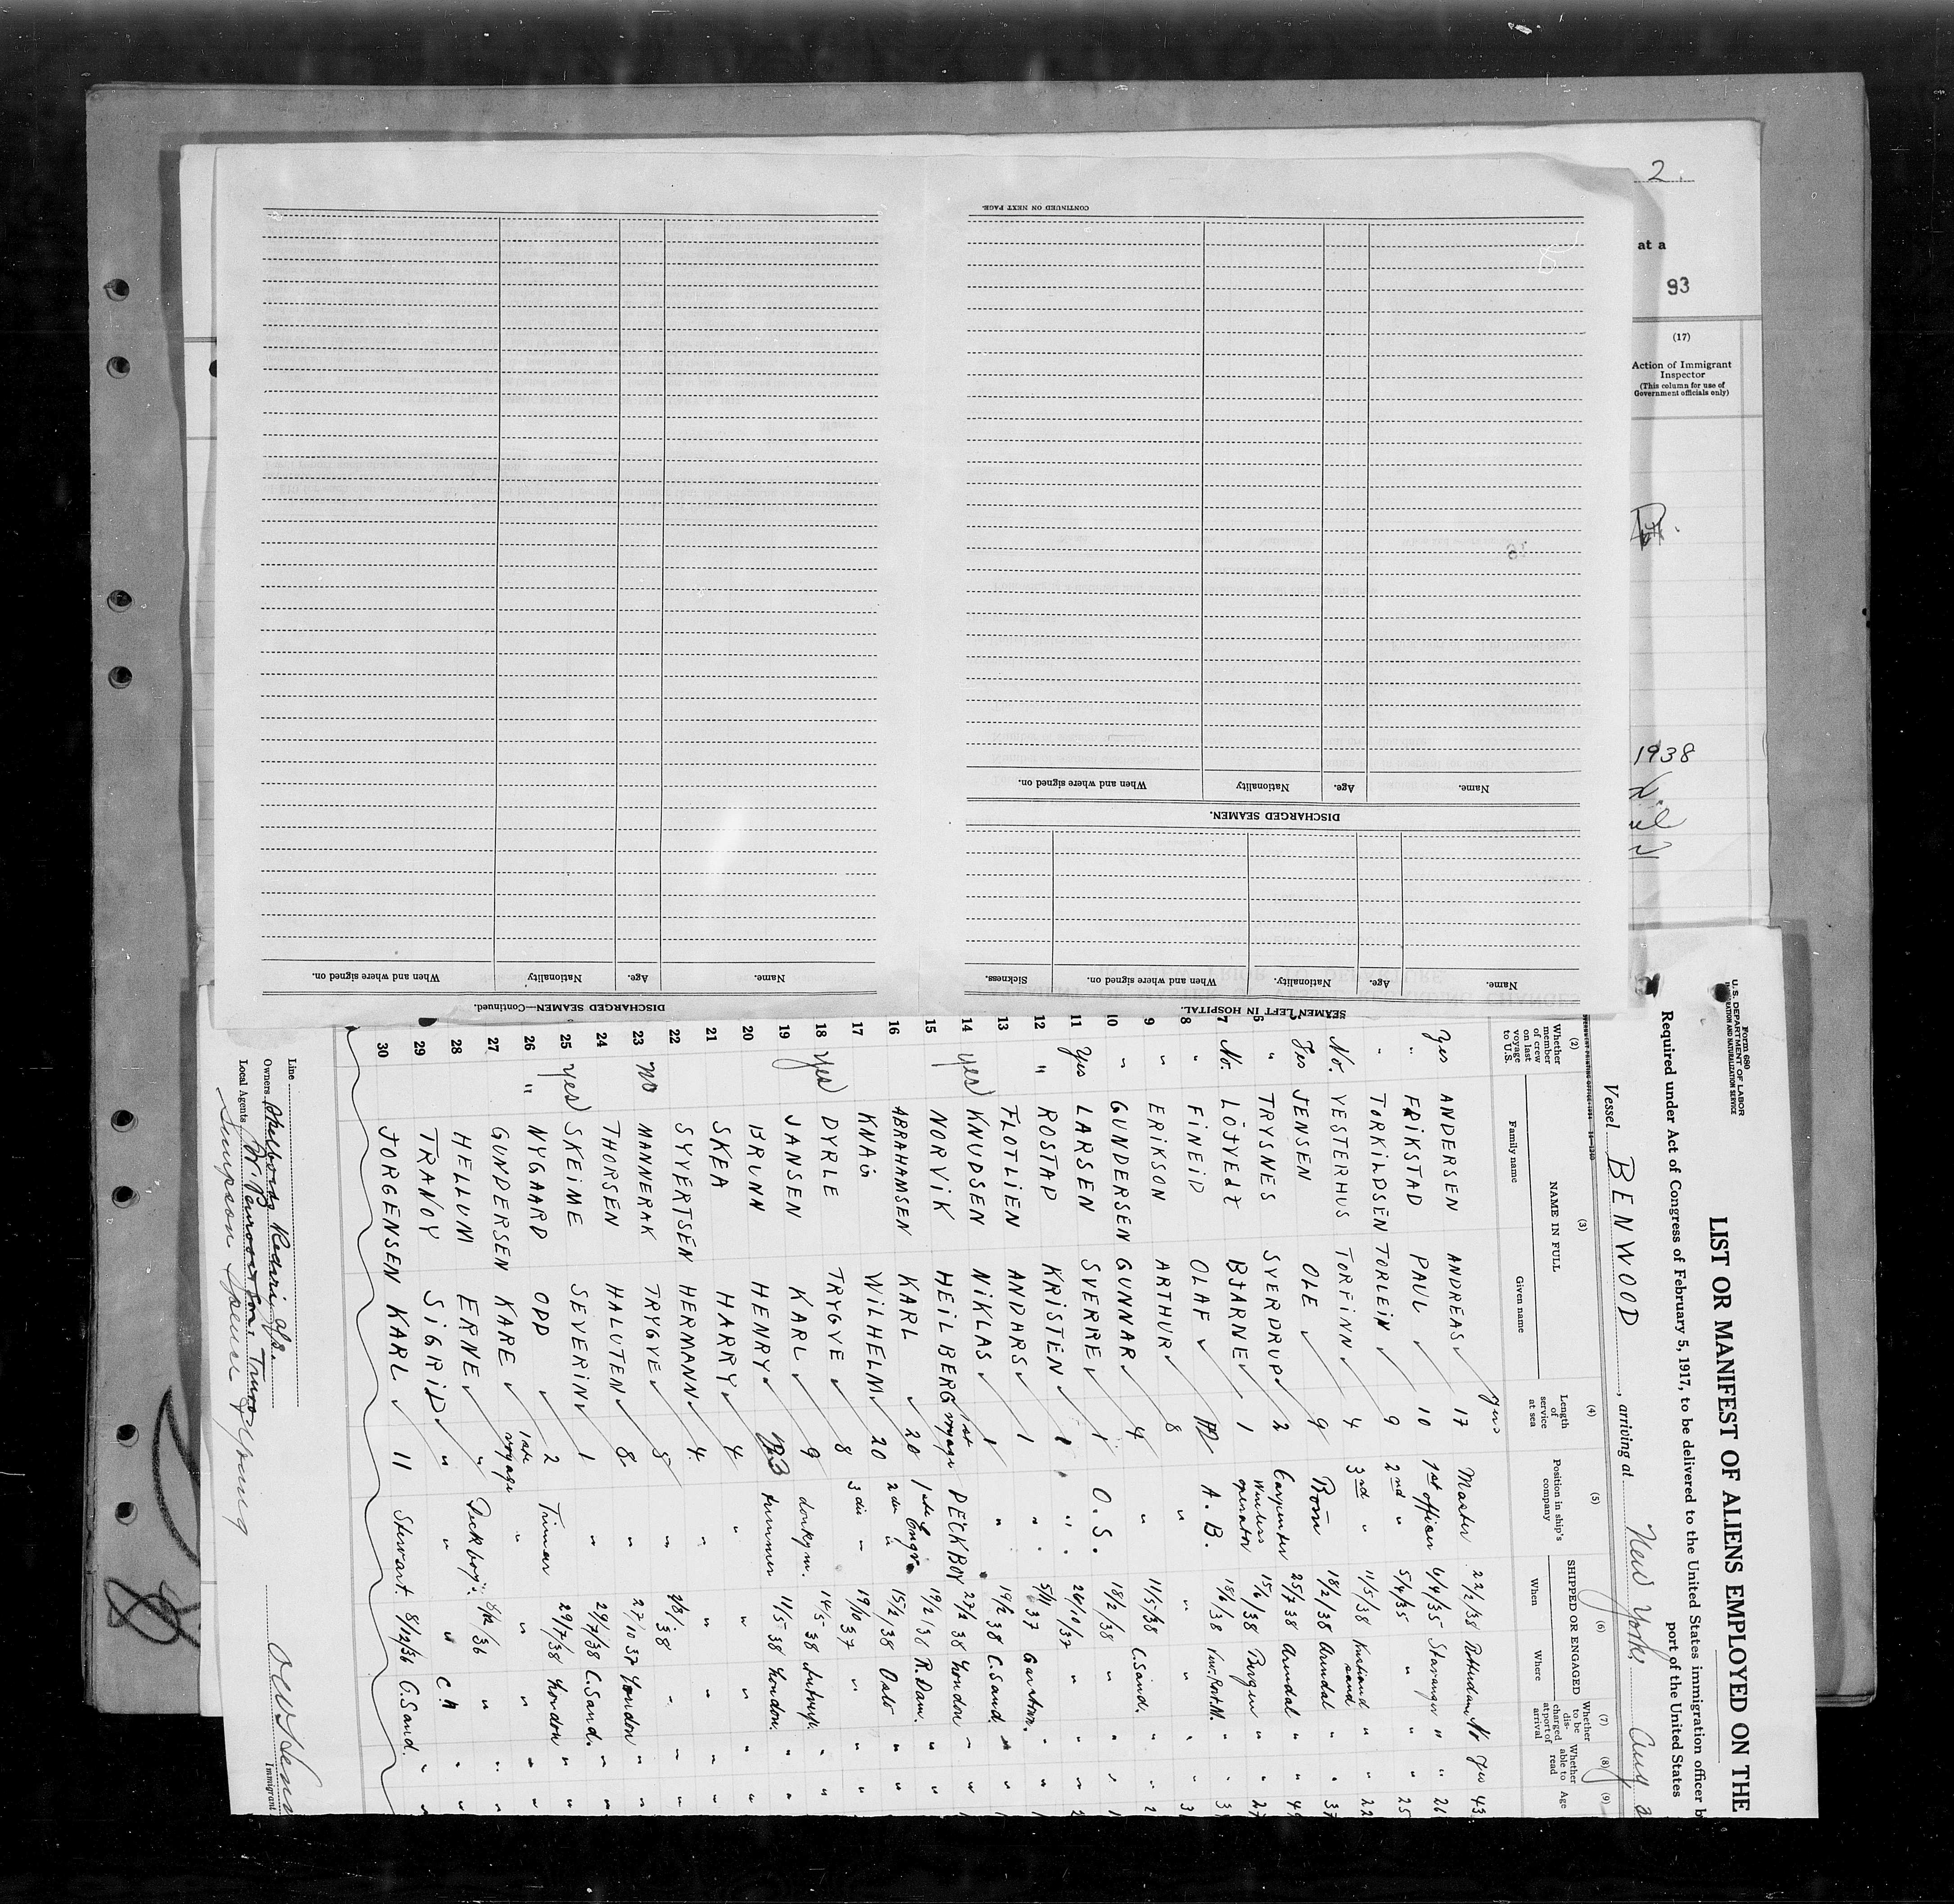 2
at a
93
(17)
Action of Immigrant
Inspector
(This column for use of
Government officials only)
1938
CONTINUED ON NEXT PAGE.
Name. Age. Nationality When and where signed on.
DISCHARGED SEAMEN.
Name. Age. Nationality. When and where signed on. Sickness.
SEAMEN LEFT IN HOSPITAL.
Name. Age. Nationality When and where signed on.
DISCHARGED SEAMEN—Continued.
Form 680
U. S. DEPARTMENT OF LABOR
IMMIGRATION AND NATURALIZATION SERVICE
LIST OR MANIFEST OF ALIENS EMPLOYED ON THE
Required under Act of Congress of February 5, 1917, to be delivered to the United States immigration officer b
port of the United States
Vessel BENWOOD, arriving at New York Aug
(2) (3) (4) (5) (6) (7) (8) (9)
Whether member of crew on last voyage to U.S. NAME IN FULL Family name Given name Length of service at sea Position in ship's company SHIPPED OR ENGAGED When Where Whether to be discharged at port of arrival Whether able to read Age
yrs
Yes ANDERSEN ANDREAS 17 Master 22/2/38 Rotterdam No Yes 43
" ERIKSTAD PAUL 10 1st officer 6/4/35 Stavanger " " 26
" TORKILDSEN TORLEIN 9 2nd " 5/4/35 " " " 25
No. VESTERHUS TORFINN 4 3rd " 11/5/38 Kristiansand " " 22
Yes JENSEN OLE 9 18/2/38 Arendal " " 37
6 " TRYSNES SVERDRUP 2 Carpenter 25/7 38 Arendal " "
7 No. LÖJVEdt BJARNE 1 Wireless operator 15/6/38 Bergen " " 27
8 " FINEID OLAF A. B. 18/6/38 " " 3
9 " ERIKSON ARTHUR 8 " " " " " 3
10 " GUNDERSEN GUNNAR 4 " 11/5/38 C. Sand. " " 2
11 Yes LARSEN SVERRE 1 O. S. 18/2/38 " " " 1
12 " ROSTAD KRISTEN 1 " 26/10/37 " " " 2
13 FLOTLIEN ANDARS 1 " 5/11 37 Garston. " " 1
14 yes KNUDSEN NIKLAS 1 " 19/2 38 C. Sand. " " 1
15 NORVIK HEILBERG 1st voyage DECKBOY 27/2 38 London " " 1
16 ABRAHAMSEN KARL 20 1ste Engr. 19/2/38 R.Dam. " "
17 KNAG WILHELM 20 2den " 15/2/38 Oslo " "
18 yes DYRLE TRYGVE 8 3die " 19/10 37 " " "
19 JANSEN KARL 9 donkym. 14/5 38 Antwerp. " "
20 BRUNN HENRY trimmer 11/5 38 London. " "
21 SKEA HARRY 4 " " " " "
22 SYVERTSEN HERMANN 4 " " " " "
23 no MANNERAK TRYGVE 5 " 2/3/38 " " "
24 THORSEN HALUTEN 8 " 27/10 37 London " "
25 yes SKEIME SEVERIN 1 " 29/7/38 C. Sand. " "
26 " NYGAARD ODD 2 Trimmer 29/7/38 London " "
27 GUNDERSEN KARE 1ste voyage " " " " "
28 HELLUM ERNE " Deckboy. 8/12/36 " " "
29 TRANOY SIGRID " " " C. " "
30 JORGENSEN KARL 11 Stewart. 8/12/36 C. Sand. " "
Line
Owners Rederi
Local Agents
Simpson Spence & Young
Immigrant